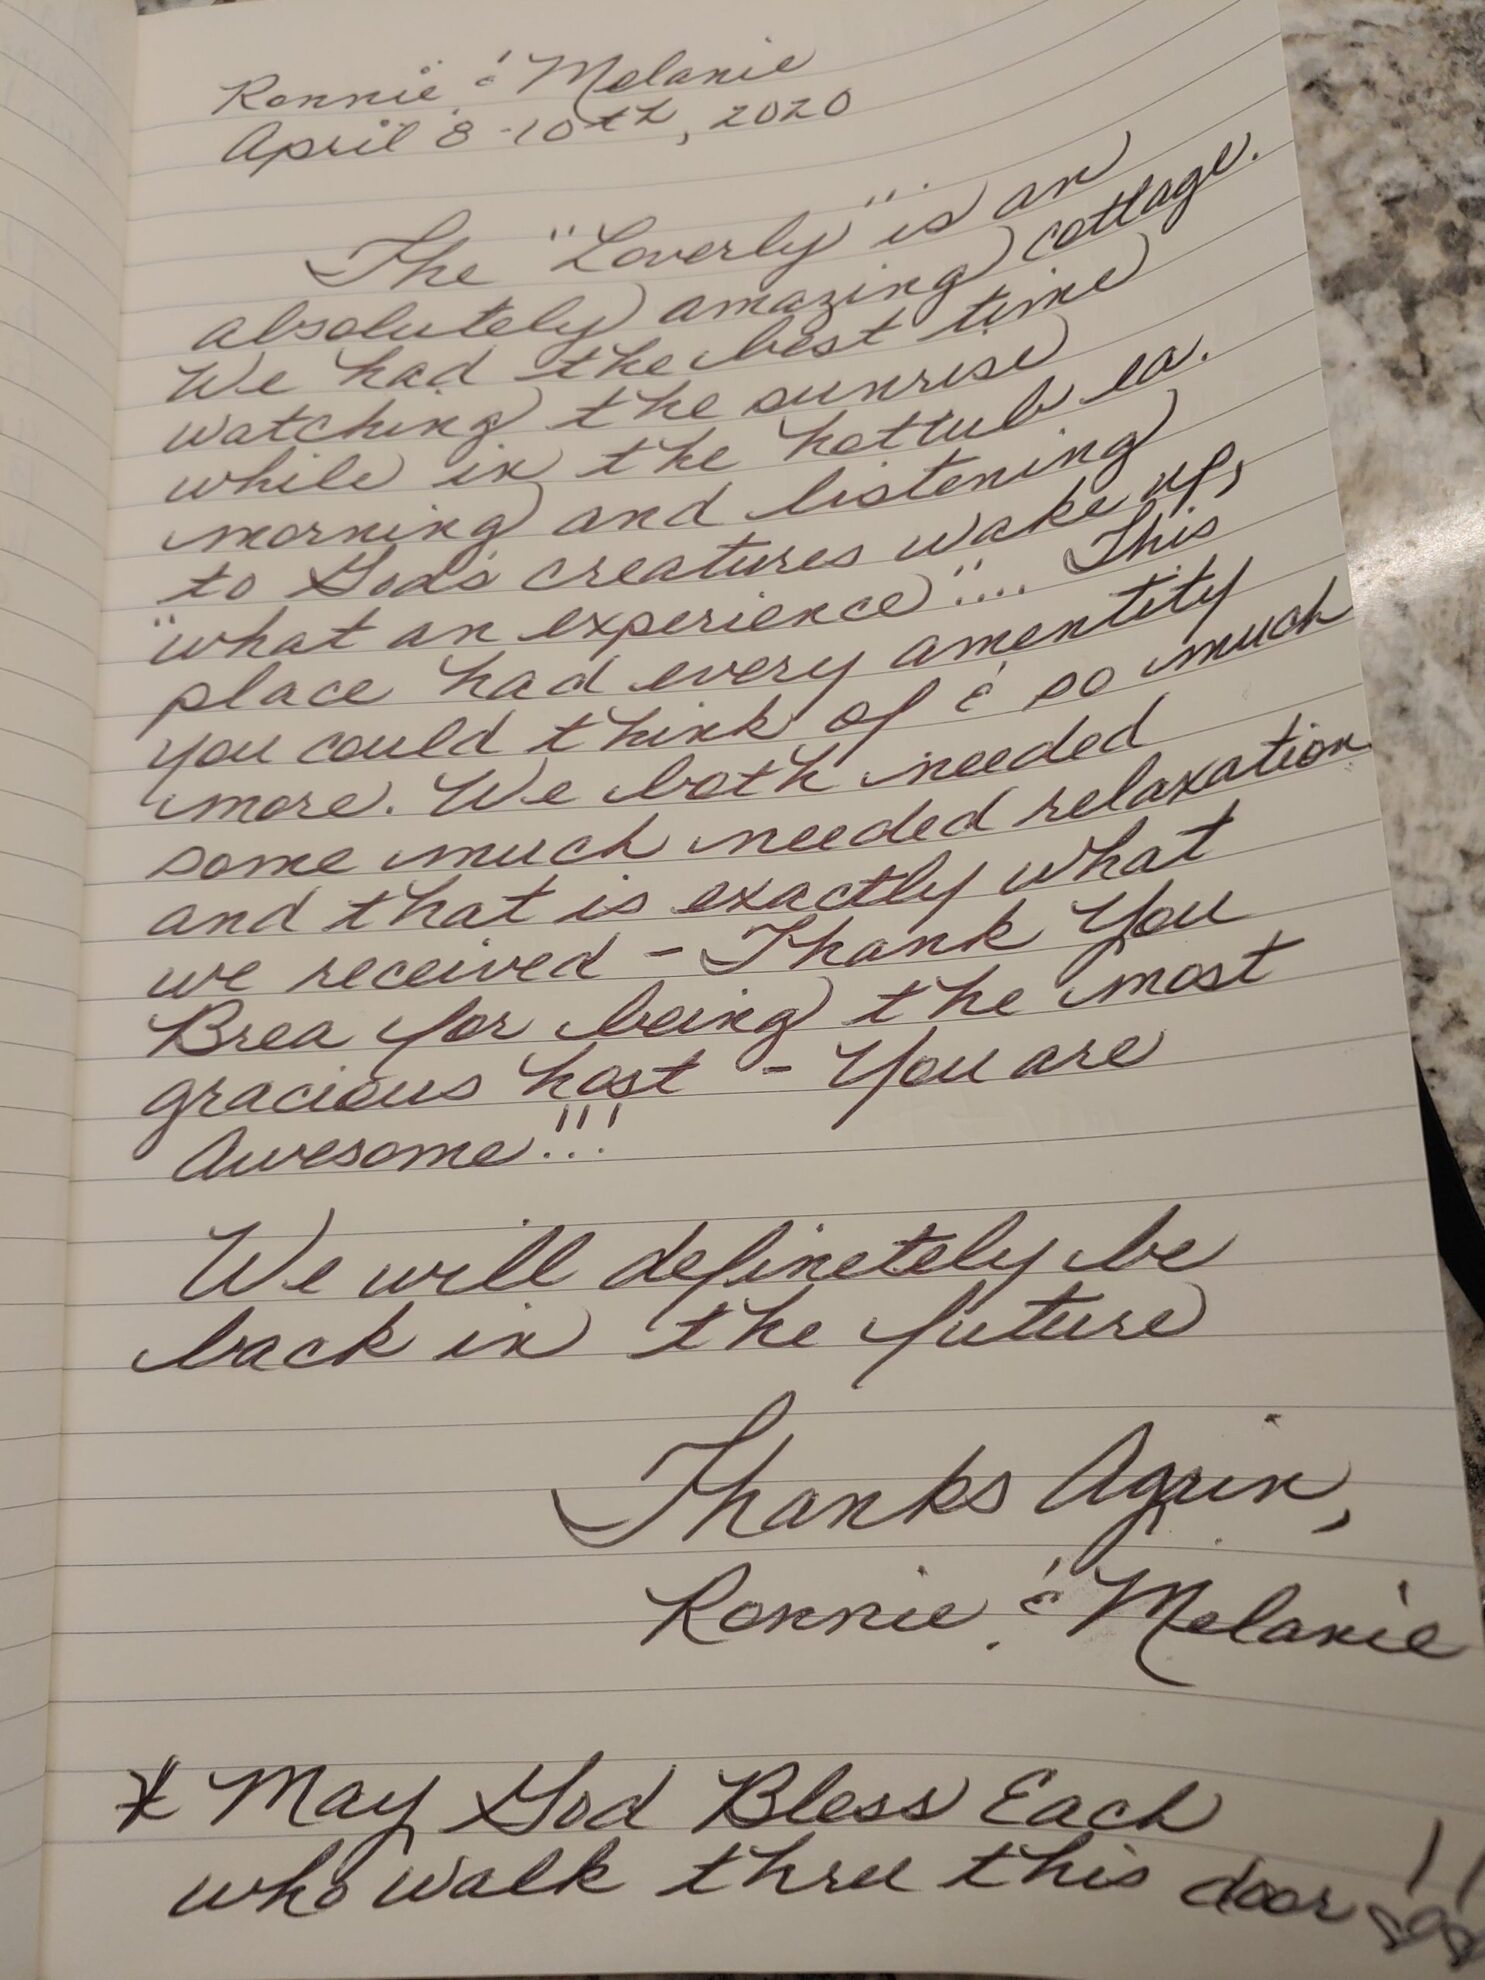 Ronnie & Melanie
April 8-10th, 2020
The "Loverly" is an
absolutely amazing cottage.
We had the best time
watching the sunrise
while in the hottub ea.
morning and listening
to God's creatures wake up,
"what an experience".... This
place had every amentity
you could think of & so much
more. We both needed
some much needed relaxation
and that is exactly what
we received - Thank You
Brea for being the most
gracious host - You are
Awesome!!!
We will definetely be
back in the future
Thanks Again,
Ronnie & Melanie
* May God Bless Each
who walk thru this door !!